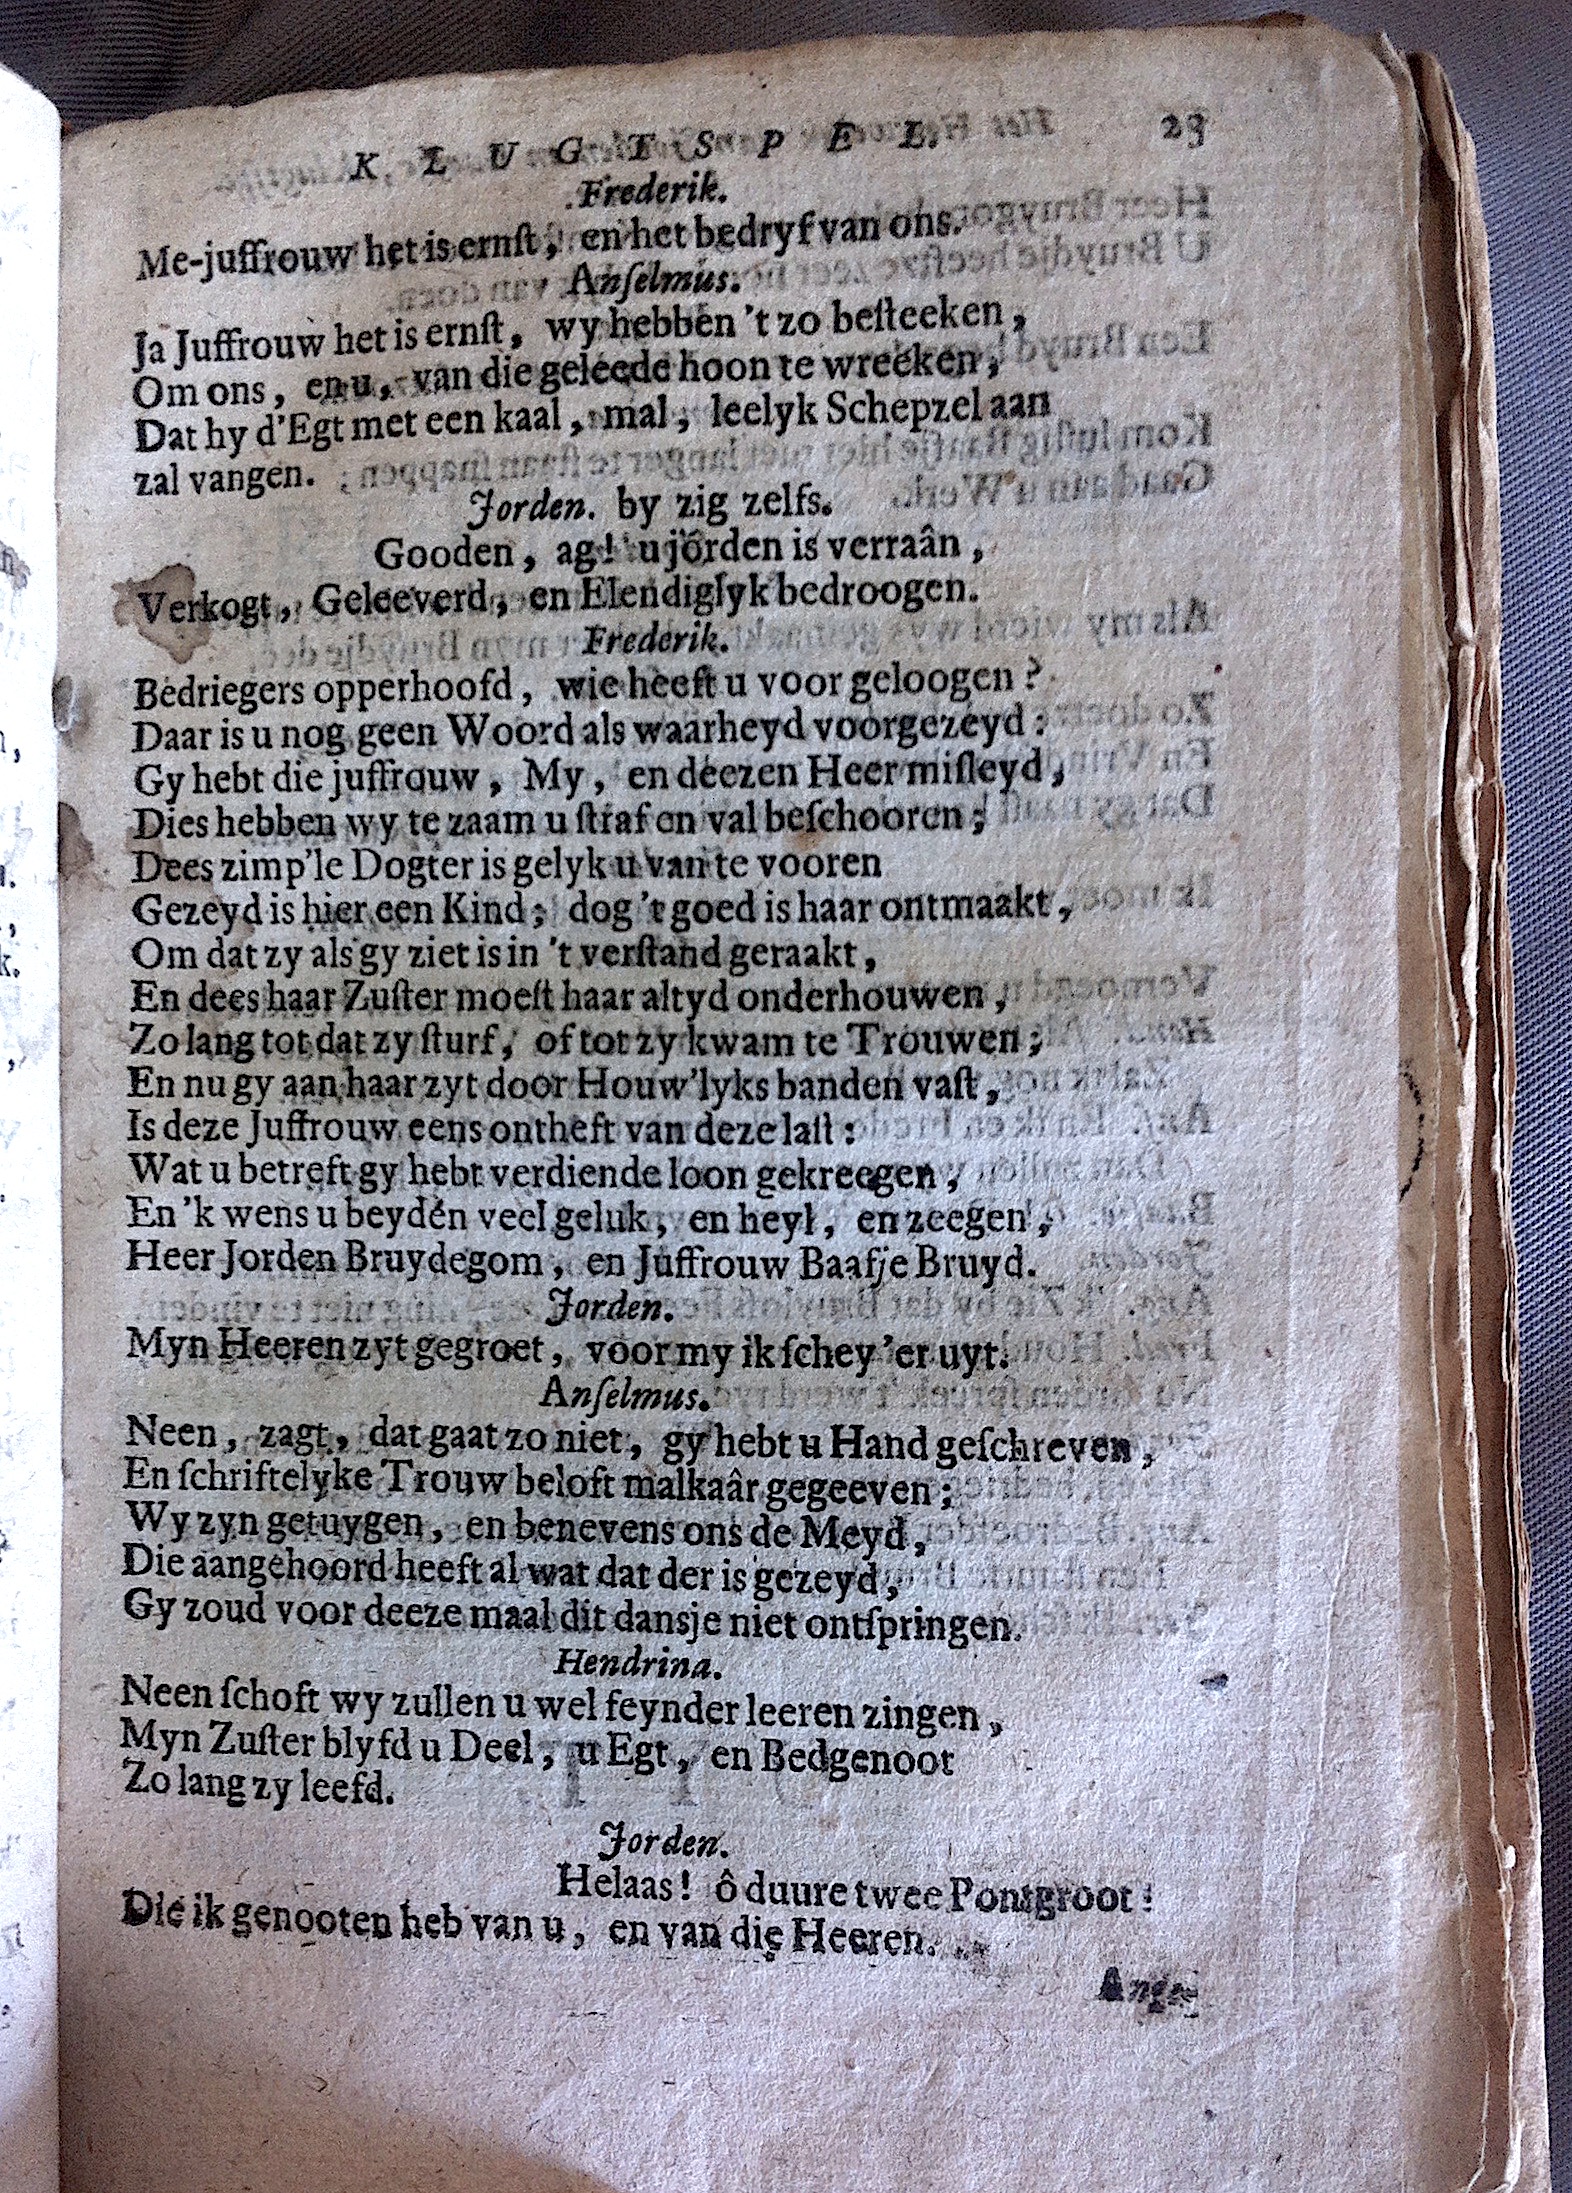 KLUGTSPEL. 23
Frederik.
Me-juffrouw het is ernſt, en het bedryf van ons.
Anſelmus.
Ja Juffrouw het is ernſt, wy hebben 't zo beſteeken,
Om ons, en u, van die geleede hoon te wreeken,
Dat hy d'Egt met een kaal, mal, leelyk Schepzel aan
zal vangen.
Jorden. by zig zelfs.
Gooden, ag! u jorden is verraân,
Verkogt, Geleeverd, en Elendiglyk bedroogen.
Frederik.
Bedriegers opperhoofd, wie heeft u voor geloogen?
Daar is u nog geen Woord als waarheyd voorgezeyd:
Gy hebt die juffrouw, My, en deezen Heer miſleyd,
Dies hebben wy te zaam u ſtraf en val beſchooren;
Dees zimp'le Dogter is gelyk u van te vooren
Gezeyd is hier een Kind; dog 't goed is haar ontmaakt,
Om dat zy als gy ziet is in 't verſtand geraakt,
En dees haar Zuſter moeſt haar altyd onderhouwen,
Zo lang tot dat zy ſturf, of tot zy kwam te Trouwen;
En nu gy aan haar zyt door Houw'lyks banden vaſt,
Is deze Juffrouw eens ontheft van deze laſt:
Wat u betreft gy hebt verdiende loon gekreegen,
En 'k wens u beyden veel geluk, en heyl, en zeegen,
Heer Jorden Bruydegom, en Juffrouw Baafje Bruyd.
Jorden.
Myn Heeren zyt gegroet, voor my ik ſchey 'er uyt.
Anſelmus.
Neen, zagt, dat gaat zo niet, gy hebt u Hand geſchreven,
En ſchriftelyke Trouw beloft malkaâr gegeeven;
Wy zyn getuygen, en benevens ons de Meyd,
Die aangehoord heeft al wat dat der is gezeyd,
Gy zoud voor deeze maal dit dansje niet ontſpringen.
Hendrina.
Neen ſchoft wy zullen u wel feynder leeren zingen,
Myn Zuſter blyfd u Deel, u Egt, en Bedgenoot
Zo lang zy leefd.
Jorden.
Helaas! ô duure twee Pontgroot!
Die ik genooten heb van u, en van die Heeren.